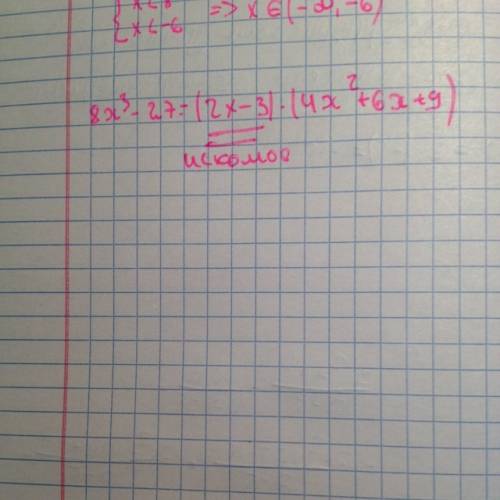 { x < -6 => x ∈ (-∞, -6)
8x³ - 27 = (2x - 3) · (4x² + 6x + 9)
искомое